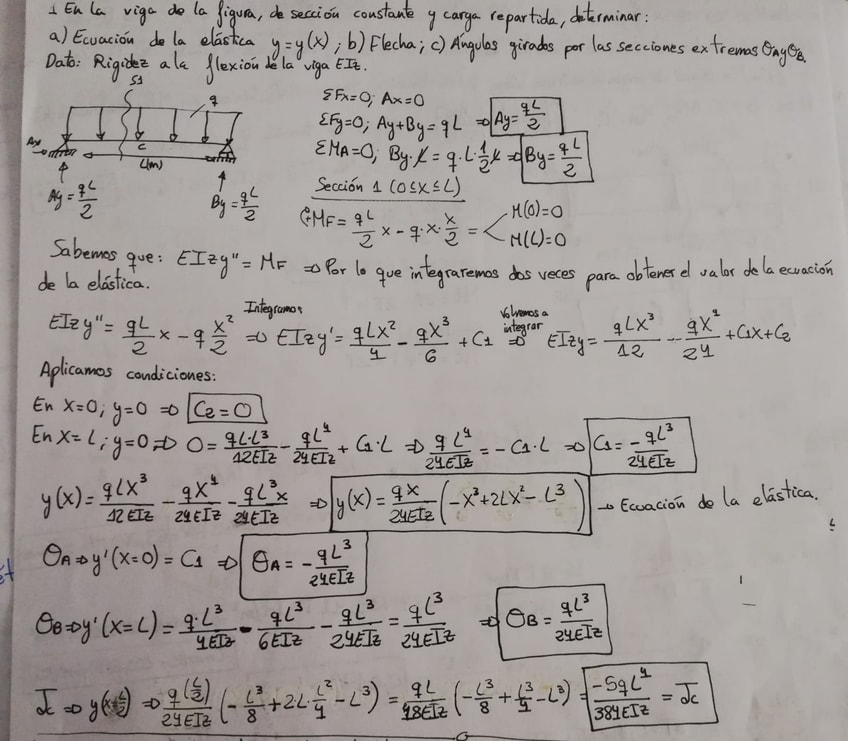 1 En la viga de la figura, de sección constante y carga repartida, determinar:
a) Ecuación de la elástica y=y(x); b) Flecha; c) Ángulos girados por las secciones extremas θA y θB.
Dato: Rigidez a la flexión de la viga EIz.
S1
q
Ax
C
L(m)
Ay = qL/2
By = qL/2
ΣFx=0; Ax=0
ΣFy=0; Ay+By=qL ⇒ Ay=qL/2
ΣMA=0; By·L=q·L·1/2L ⇒ By=qL/2
Sección 1 (0≤x≤L)
MF= qL/2 x - q·x·x/2 = M(0)=0
M(L)=0
Sabemos que: EIzy"=MF ⇒ Por lo que integraremos dos veces para obtener el valor de la ecuación
de la elástica.
EIzy"= qL/2 x - q x²/2 Integramos ⇒ EIzy'= qLx²/4 - qx³/6 + C1 Volvemos a integrar ⇒ EIzy= qLx³/12 - qx⁴/24 + C1x + C2
Aplicamos condiciones:
En x=0; y=0 ⇒ C2=0
En x=L; y=0 ⇒ 0= qL·L³/12EIz - qL⁴/24EIz + C1·L ⇒ qL⁴/24EIz = -C1·L ⇒ C1= -qL³/24EIz
y(x)= qLx³/12EIz - qx⁴/24EIz - qL³x/24EIz ⇒ y(x)= qx/24EIz (-x³+2Lx²-L³) → Ecuación de la elástica.
θA ⇒ y'(x=0)=C1 ⇒ θA= -qL³/24EIz
θB ⇒ y'(x=L)= q·L³/4EIz - qL³/6EIz - qL³/24EIz = qL³/24EIz ⇒ θB= qL³/24EIz
fc ⇒ y(x=L/2) ⇒ q(L/2)/24EIz (-L³/8 + 2L·L²/4 - L³) = qL/48EIz (-L³/8 + L³/4 - L³) = -5qL⁴/384EIz = fc